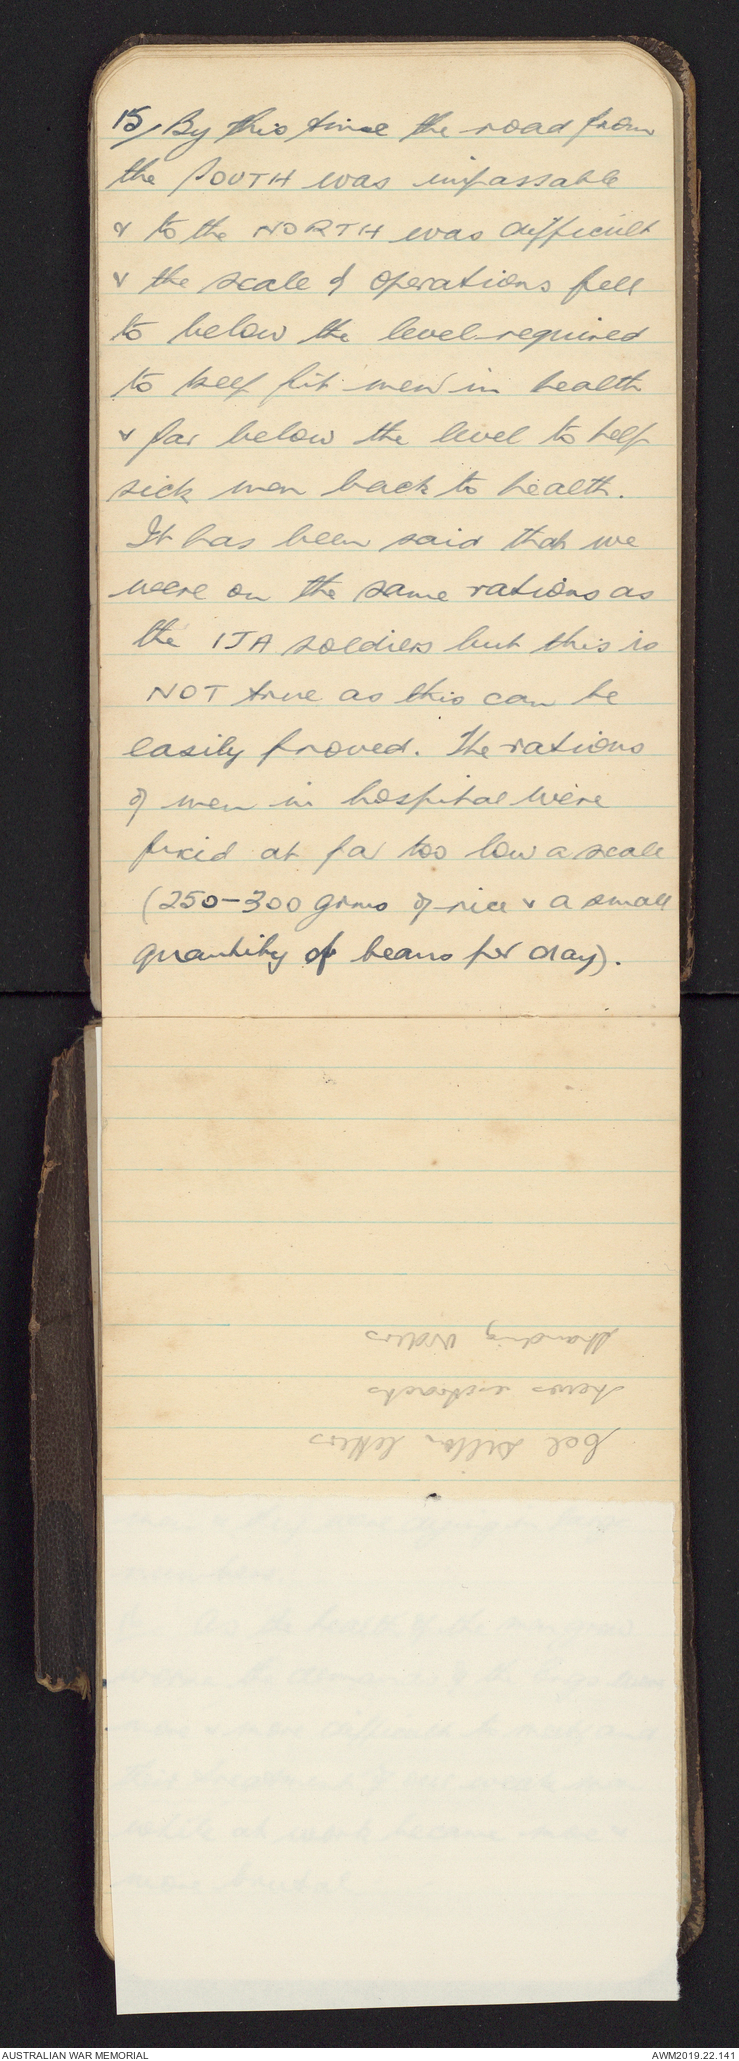 15/ By this time the road from
the SOUTH was impassable
& to the NORTH was difficult
& the scale of operations fell
to below the level required
to keep fit men in health
& far below the level to help
sick men back to health.
It has been said that we
were on the same rations as
the IJA soldiers but this is
NOT true as this can be
easily proved. The rations
of men in hospital were
fixed at far too low a scale
(250-300 grms of rice & a small
quantity of beans per day).
Col Dillon letters
news extracts
Standing Orders
AUSTRALIAN WAR MEMORIAL
AWM2019.22.141